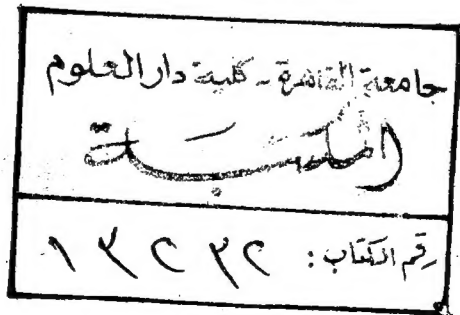 جامعة القاهرة - كلية دار العلوم
المكتبة
رقم الكتاب : ١٣٢٣٢